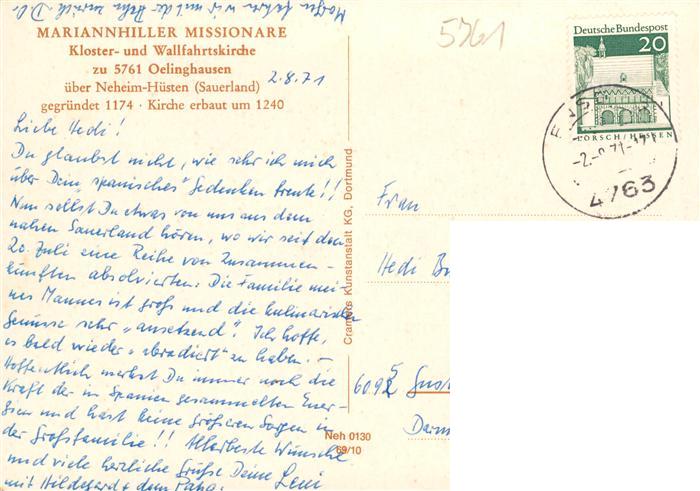 Morgen fahren wir mit der Bahn zurück. D.O.
MARIANNHILLER MISSIONARE
Kloster- und Wallfahrtskirche
zu 5761 Oelinghausen
über Neheim-Hüsten (Sauerland)
gegründet 1174 · Kirche erbaut um 1240
2.8.71
Liebe Hedi!
Du glaubst nicht, wie sehr ich mich
über Dein "spanisches" Gedenken freute!!
Nun sollst Du etwas von uns aus dem
nahen Sauerland hören, wo wir seit dem
20. Juli eine Reihe von Zusammen-
künften absolvierten: Die Familie mei-
nes Mannes ist groß und die kulinarischen
Genüsse sehr "ansetzend". Ich hoffe,
es bald wieder "abradiert" zu haben. –
Hoffentlich merkst Du immer noch die
Kraft der in Spanien gesammelten Ener-
gien und hast keine größeren Sorgen in
der Großfamilie!! Allerbeste Wünsche
und viele herzliche Grüße Deine Leni
mit Hildegard + dem Papa.
Cramers Kunstanstalt KG, Dortmund
Neh 0130
69/10
5761
Deutsche Bundespost
20
LORSCH/HESSEN
-2.-8.71-
4763
Frau
Hedi
6092
Darm